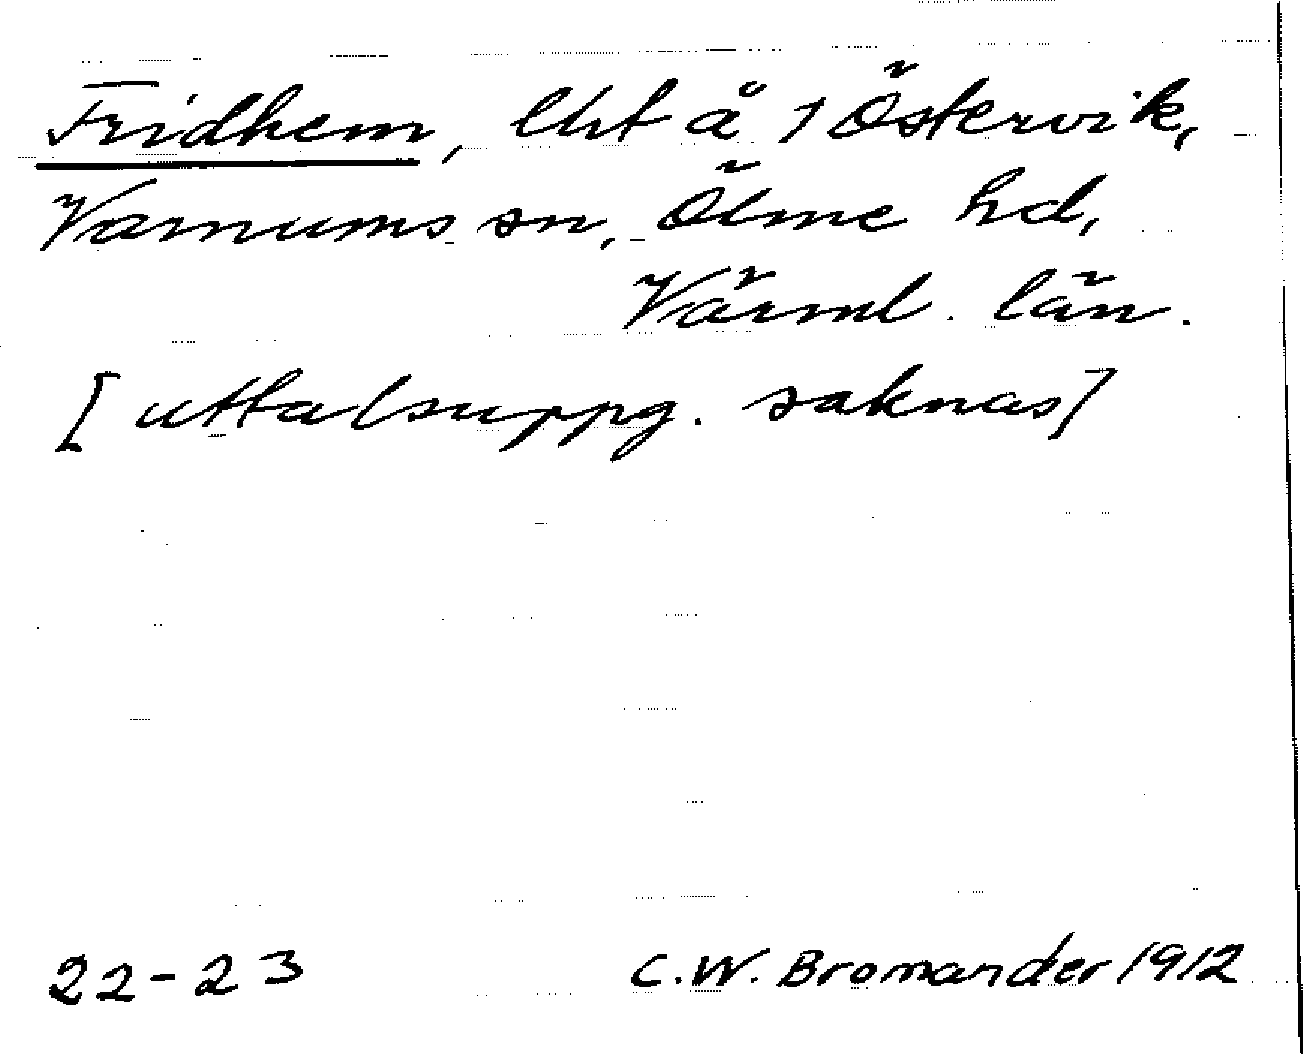 Fridhem, lht å 1 Östervik,
Varnums sn, Ölme hd,
Värml. län.
[uttalsuppg. saknas]
22-23 C.W. Bromander 1912